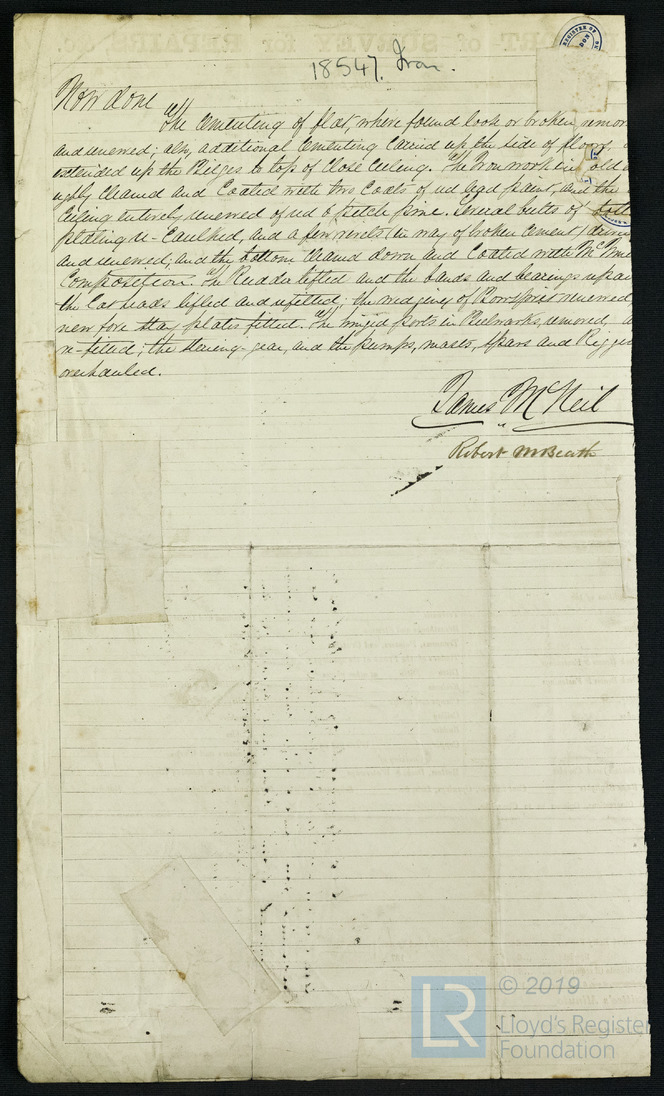 18547. Iron.
Now done
The Cementing of flat, where found loose or broken, remov
and renewed; also, additional Cementing carried up the side of floors,
extended up the Bilges to top of close Ceiling. The Iron work in
Cleaned and Coated with two Coats of red lead paint, and the
Ceiling entirely renewed of red & pitch pine. Several butts of
plating re-Caulked, and a few rivets (in way of broken Cement)
and renewed; and the bottom Cleaned down and Coated with
Composition. The Rudder lifted and the bands and bearings
the Catheads lifted and refitted; the wedging of Bowsprit renewed,
new fore stay plates fitted. The hinged ports in Bulwarks, removed,
re-fitted; the steering gear, and the Pumps, masts, Spars and
overhauled.
James McNeil
Robert McBeath
LR © 2019
Lloyd's Register
Foundation